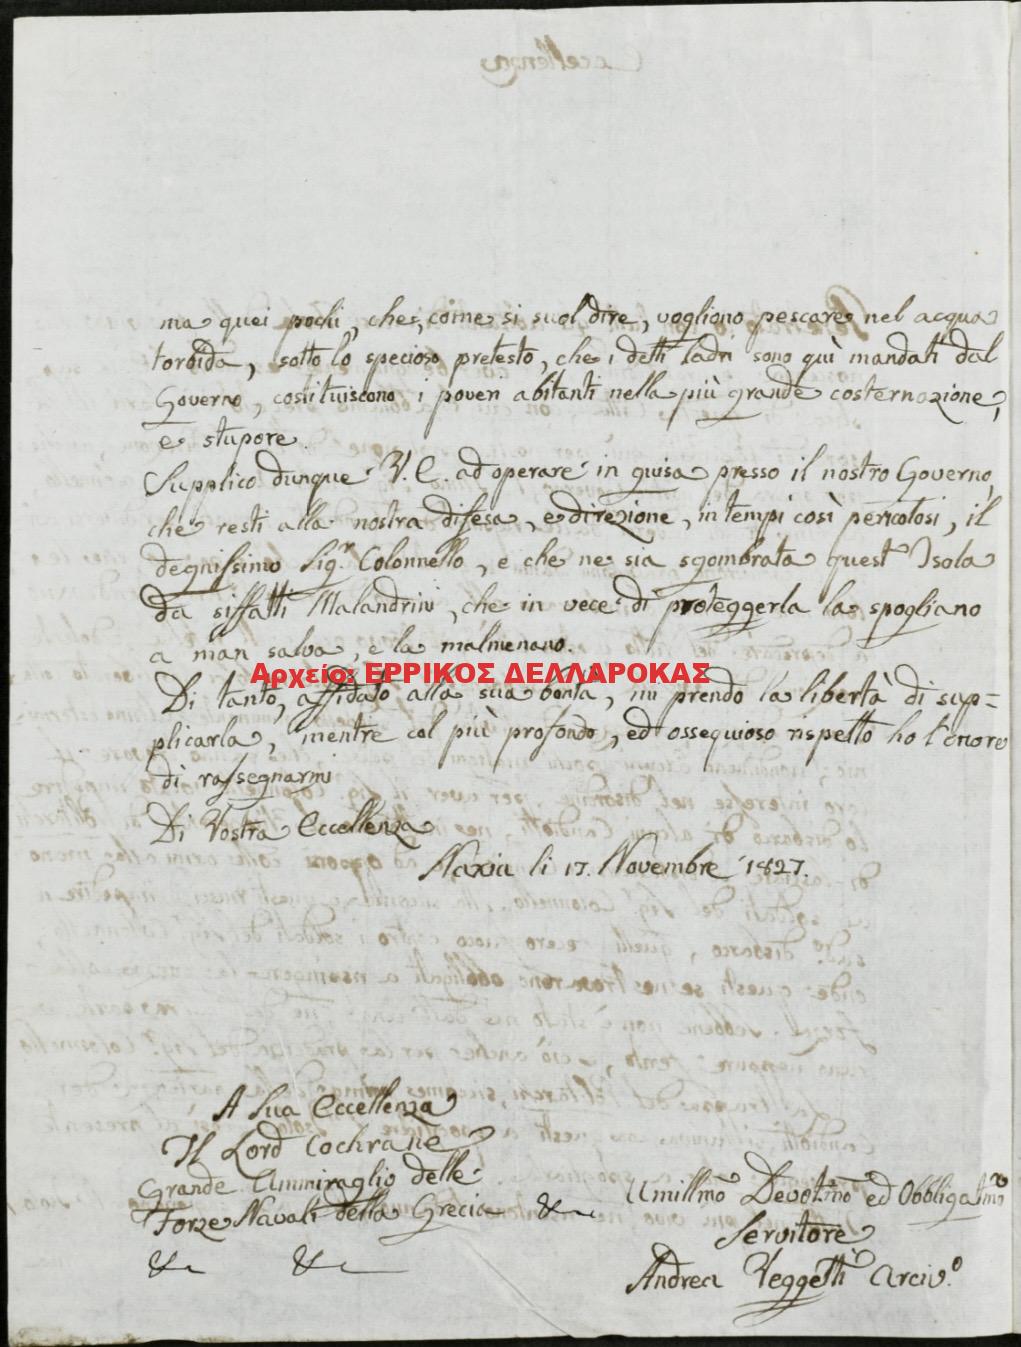 ma quei pochi, che, come si suol dire, vogliono pescare nel acqua
torbida, sotto lo specioso pretesto, che i detti Ladri sono quì mandati dal
Governo, costituiscono i poveri abitanti nella più grande costernazione,
e stupore.
Supplico dunque V. E. ad operare in guisa presso il nostro Governo,
che resti alla nostra difesa, e direzione, in tempi così pericolosi, il
degnissimo Sigr. Colonnello, e che ne sia sgombrata quest' Isola
da siffatti Malandrini, che in vece di proteggerla la spogliano
a man salva, e la malmenano.
Αρχείο: ΕΡΡΙΚΟΣ ΔΕΛΛΑΡΟΚΑΣ
Di tanto, affidato alla sua bontà, mi prendo la libertà di sup=
plicarla, mentre col più profondo, ed ossequioso rispetto ho l'onore
di rassegnarmi
Di Vostra Eccellenza
Naxia li 17. Novembre 1827.
A Sua Eccellenza
Il Lord Cochrane
Grande Ammiraglio delle
Forze Navali della Grecia &c
&c &c
Umillmo Devotmo ed Obbligatmo
Servitore
Andrea Veggetti Arciv.o